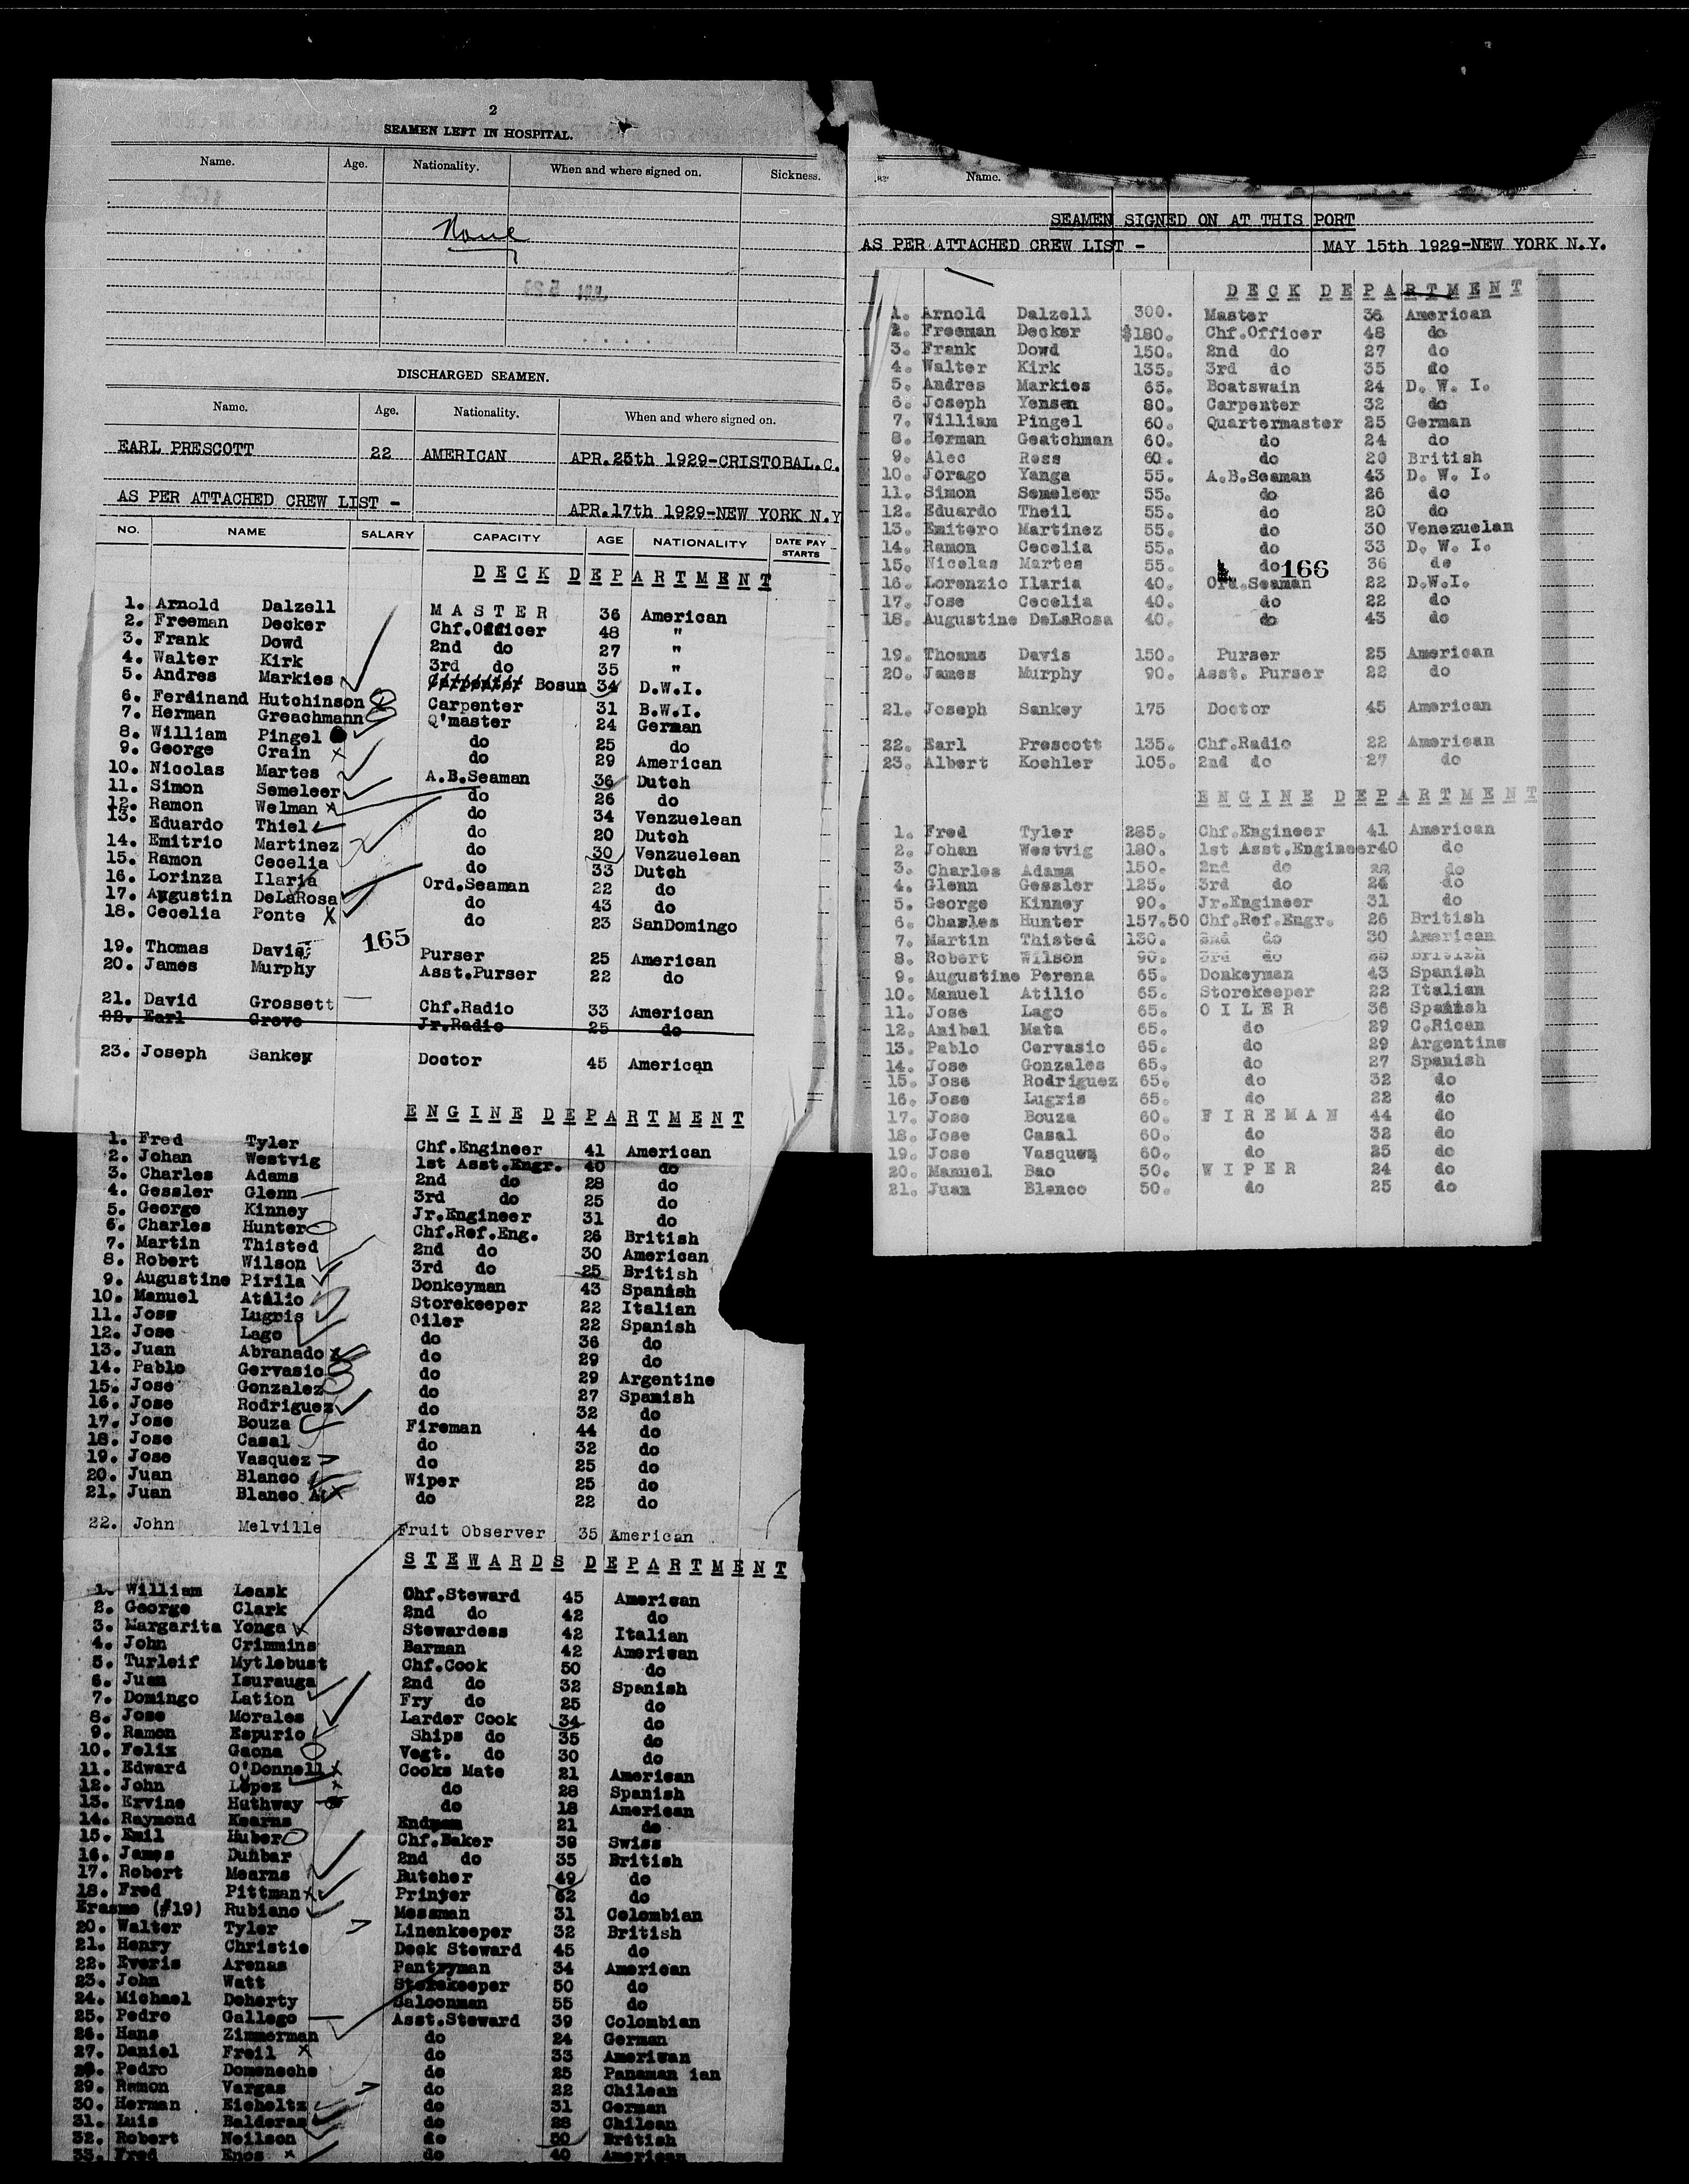 2
SEAMEN LEFT IN HOSPITAL.
Name. Age. Nationality. When and where signed on. Sickness.
None
DISCHARGED SEAMEN.
Name. Age. Nationality. When and where signed on.
EARL PRESCOTT 22 AMERICAN APR.25th 1929-CRISTOBAL.C.
AS PER ATTACHED CREW LIST - APR.17th 1929-NEW YORK N.Y
NO. NAME SALARY CAPACITY AGE NATIONALITY DATE PAY STARTS
DECK DEPARTMENT
1. Arnold Dalzell MASTER 36 American
2. Freeman Decker Chf.Officer 48 "
3. Frank Dowd 2nd do 27 "
4. Walter Kirk 3rd do 35 "
5. Andres Markies Carpenter Bosun 34 D.W.I.
6. Ferdinand Hutchinson Carpenter 31 B.W.I.
7. Herman Greachmann Q'master 24 German
8. William Pingel do 25 do
9. George Crain do 29 American
10. Nicolas Martes A.B.Seaman 36 Dutch
11. Simon Semeleer do 26 do
12. Ramon Welman do 34 Venzuelean
13. Eduardo Thiel do 20 Dutch
14. Emitrio Martinez do 30 Venzuelean
15. Ramon Cecelia do 33 Dutch
16. Lorinza Ilaria Ord.Seaman 22 do
17. Augustin DeLaRosa do 43 do
18. Cecelia Ponte X do 23 SanDomingo
165
19. Thomas Davis Purser 25 American
20. James Murphy Asst.Purser 22 do
21. David Grossett Chf.Radio 33 American
22. Earl Grove Jr.Radio 25 do
23. Joseph Sankey Doctor 45 American
ENGINE DEPARTMENT
1. Fred Tyler Chf.Engineer 41 American
2. Johan Westvig 1st Asst.Engr. 40 do
3. Charles Adams 2nd do 28 do
4. Gessler Glenn 3rd do 25 do
5. George Kinney Jr.Engineer 31 do
6. Charles Hunter Chf.Ref.Eng. 26 British
7. Martin Thisted 2nd do 30 American
8. Robert Wilson 3rd do 25 British
9. Augustine Pirila Donkeyman 43 Spanish
10. Manuel Atilio Storekeeper 22 Italian
11. Jose Lugris Oiler 22 Spanish
12. Jose Lago do 36 do
13. Juan Abranado do 29 do
14. Pablo Gervasio do 29 Argentine
15. Jose Gonzalez do 27 Spanish
16. Jose Rodriguez do 32 do
17. Jose Bouza Fireman 44 do
18. Jose Casal do 32 do
19. Jose Vasquez do 25 do
20. Juan Blanco Wiper 25 do
21. Juan Blanco A. do 22 do
22. John Melville Fruit Observer 35 American
STEWARDS DEPARTMENT
1. William Leask Chf.Steward 45 American
2. George Clark 2nd do 42 do
3. Margarita Yonga Stewardess 42 Italian
4. John Crimmins Barman 42 American
5. Turleif Mytlebust Chf.Cook 50 do
6. Juan Isurauga 2nd do 32 Spanish
7. Domingo Lation Fry do 25 do
8. Jose Morales Larder Cook 34 do
9. Ramon Espurio Ships do 35 do
10. Felix Gaona Vegt. do 30 do
11. Edward O'Donnell Cooks Mate 21 American
12. John Lopez do 28 Spanish
13. Ervine Hathway do 18 American
14. Raymond Kearns Endman 21 do
15. Emil Huber Chf.Baker 39 Swiss
16. James Dunbar 2nd do 35 British
17. Robert Mearns Butcher 49 do
18. Fred Pittman Printer 62 do
Erasmo (#19) Rubiano Messman 31 Colombian
20. Walter Tyler Linenkeeper 32 British
21. Henry Christie Deck Steward 45 do
22. Everis Arenas Pantryman 34 American
23. John Watt Storekeeper 50 do
24. Michael Doherty Saloonman 55 do
25. Pedro Gallego Asst.Steward 39 Colombian
26. Hans Zimmerman do 24 German
27. Daniel Freil do 33 American
28. Pedro Domeneche do 25 Panaman ian
29. Ramon Vargas do 22 Chilean
30. Herman Eicholtz do 31 German
31. Luis Balderas do 28 Chilean
32. Robert Neilson do 50 British
33. Fred Enos do 40 American
Name.
SEAMEN SIGNED ON AT THIS PORT
AS PER ATTACHED CREW LIST - MAY 15th 1929-NEW YORK N.Y.
DECK DEPARTMENT
1. Arnold Dalzell 300. Master 36 American
2. Freeman Decker $180. Chf.Officer 48 do
3. Frank Dowd 150. 2nd do 27 do
4. Walter Kirk 135. 3rd do 35 do
5. Andres Markies 65. Boatswain 24 D. W. I.
6. Joseph Yensen 80. Carpenter 32 do
7. William Pingel 60. Quartermaster 25 German
8. Herman Geatchman 60. do 24 do
9. Alec Ross 60. do 20 British
10. Jorago Yanga 55. A.B.Seaman 43 D. W. I.
11. Simon Semeleer 55. do 26 do
12. Eduardo Theil 55. do 20 do
13. Emitero Martinez 55. do 30 Venezuelan
14. Ramon Cecelia 55. do 33 D. W. I.
15. Nicolas Martes 55. do 36 do
166
16. Lorenzio Ilaria 40. Ord.Seaman 22 D.W.I.
17. Jose Cecelia 40. do 22 do
18. Augustine DeLaRosa 40. do 43 do
19. Thoams Davis 150. Purser 25 American
20. James Murphy 90. Asst. Purser 22 do
21. Joseph Sankey 175 Doctor 45 American
22. Earl Prescott 135. Chf.Radio 22 American
23. Albert Koehler 105. 2nd do 27 do
ENGINE DEPARTMENT
1. Fred Tyler 285. Chf.Engineer 41 American
2. Johan Westvig 180. 1st Asst.Engineer40 do
3. Charles Adams 150. 2nd do 28 do
4. Glenn Gessler 125. 3rd do 26 do
5. George Kinney 90. Jr.Engineer 31 do
6. Charles Hunter 157.50 Chf.Ref.Engr. 26 British
7. Martin Thisted 130. 2nd do 30 American
8. Robert Wilson 90. 3rd do 25 British
9. Augustine Perena 65. Donkeyman 43 Spanish
10. Manuel Atilio 65. Storekeeper 22 Italian
11. Jose Lago 65. OILER 36 Spanish
12. Anibal Mata 65. do 29 C.Rican
13. Pablo Cervasio 65. do 29 Argentine
14. Jose Gonzales 65. do 27 Spanish
15. Jose Rodriguez 65. do 32 do
16. Jose Lugris 65. do 22 do
17. Jose Bouza 60. FIREMAN 44 do
18. Jose Casal 60. do 32 do
19. Jose Vasquez 60. do 25 do
20. Manuel Bao 50. WIPER 24 do
21. Juan Blanco 50. do 25 do